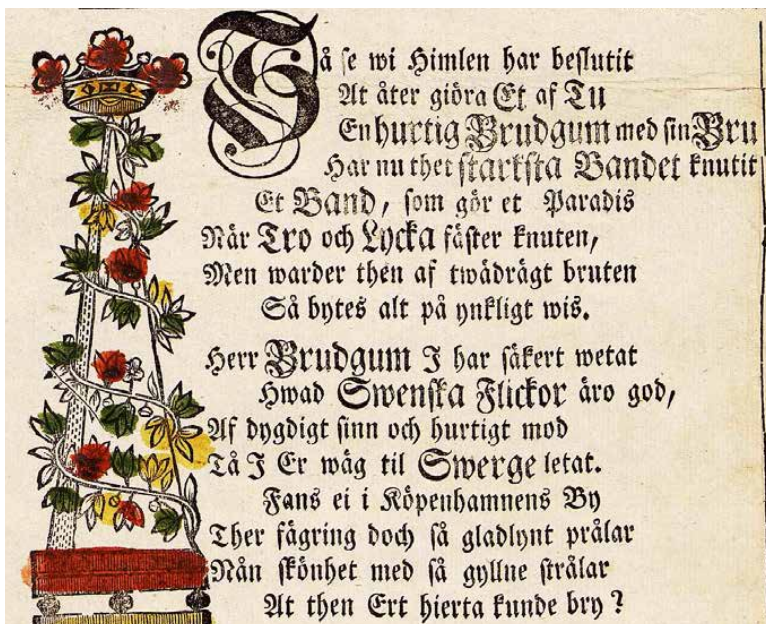 Så se wi Himlen har beslutit
At åter giöra Et af Tu
En hurtig Brudgum med sin Bru
Har nu thet starksta Bandet knutit
Et Band, som gör et Paradis
När Tro och Lycka fäster knuten,
Men warder then af twädrägt bruten
Så bytes alt på ynkligt wis.
Herr Brudgum I har säkert wetat
Hwad Swenska Flickor äro god,
Af dygdigt sinn och hurtigt mod
Tå I Er wäg til Swerge letat.
Fans ei i Köpenhamnens By
Ther fägring doch så gladlynt prålar
Nån skönhet med så gyllne strålar
At then Ert hierta kunde bry ?